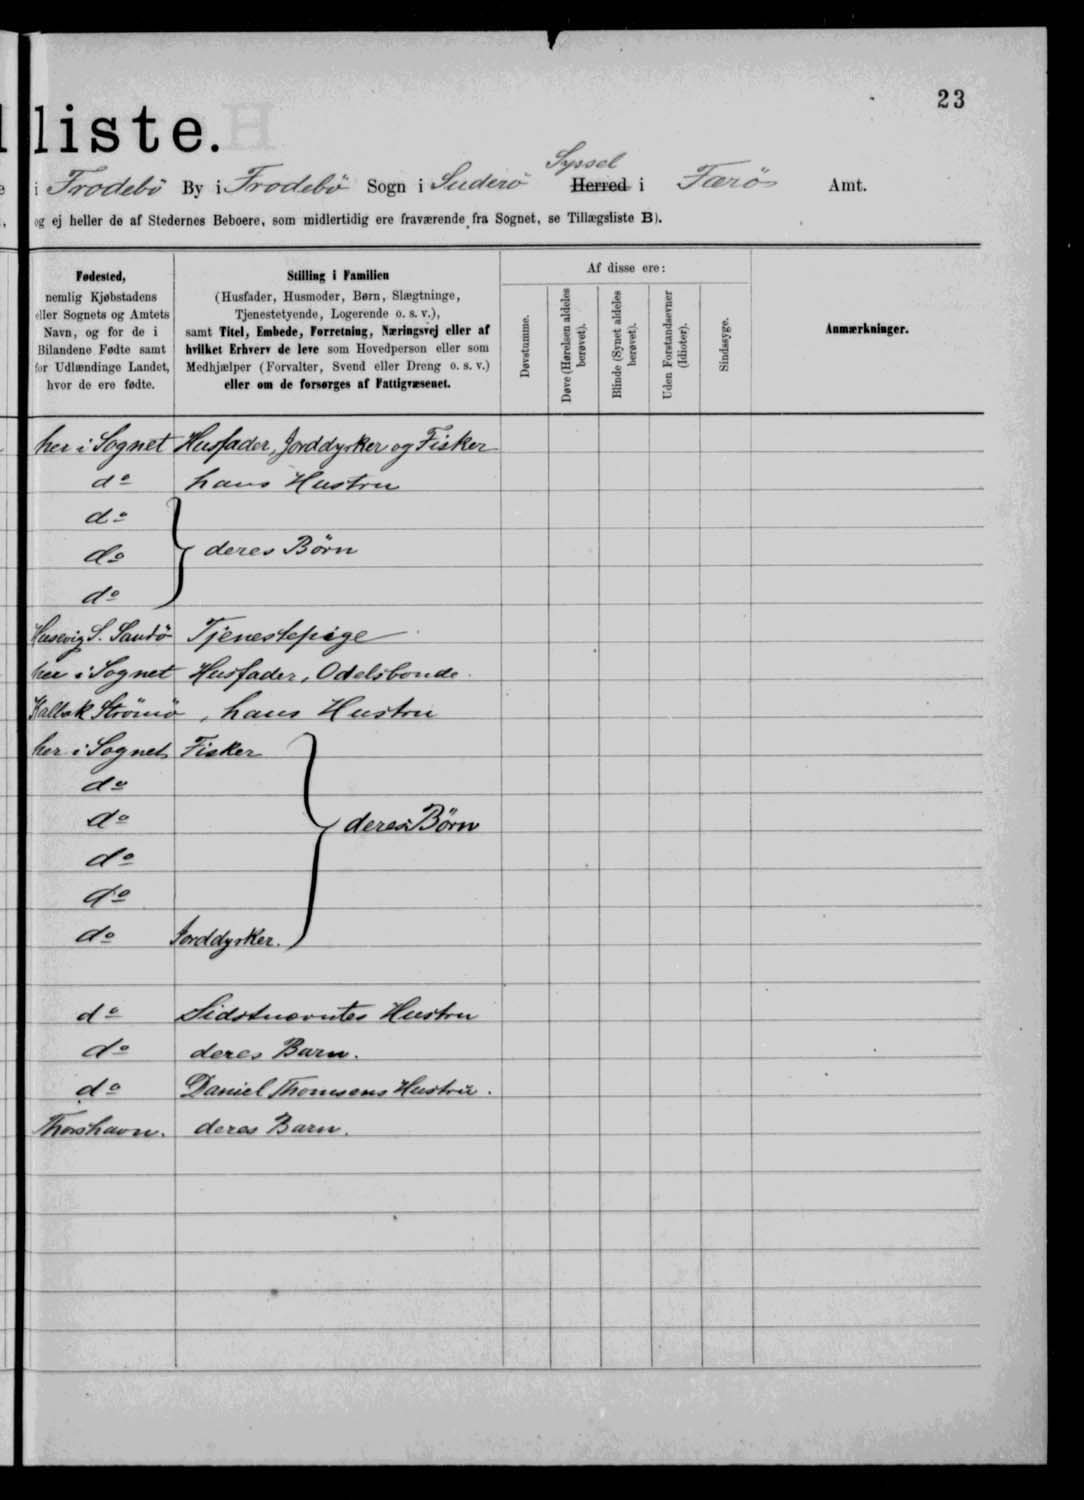 23
liste.
Syssel
i Frodebö By i Frodebö Sogn i Suderö Herred i Færös Amt.
og ej heller de af Stedernes Beboere, som midlertidig ere fraværende fra Sognet, se Tillægsliste B).
Fødested,
nemlig Kjøbstadens
eller Sognets og Amtets
Navn, og for de i
Bilandene Fødte samt
for Udlændinge Landet,
hvor de ere fødte.
Stilling i Familien
(Husfader, Husmoder, Børn, Slægtninge,
Tjenestetyende, Logerende o. s. v.),
samt Titel, Embede, Forretning, Næringsvej eller af
hvilket Erhverv de leve som Hovedperson eller som
Medhjælper (Forvalter, Svend eller Dreng o. s. v.)
eller om de forsørges af Fattigvæsenet.
Af disse ere:
Døvstumme.
Døve (Hørelsen aldeles
berøvet).
Blinde (Synet aldeles
berøvet).
Uden Forstandsevner
(Idioter).
Sindssyge.
Anmærkninger.
her i Sognet Husfader, Jorddyrker og Fisker
do hans Hustru
do
do deres Børn
do
Husevig S. Sandö Tjenestepige
her i Sognet Husfader, Odelsbonde.
Kalbak Strömö , hans Hustru
her i Sognet Fisker
do
do deres Børn
do
do
do Jorddyrker.
do Sidstnævntes Hustru
do deres Barn.
do Daniel Thomsens Hustru.
Thorshavn. deres Barn.